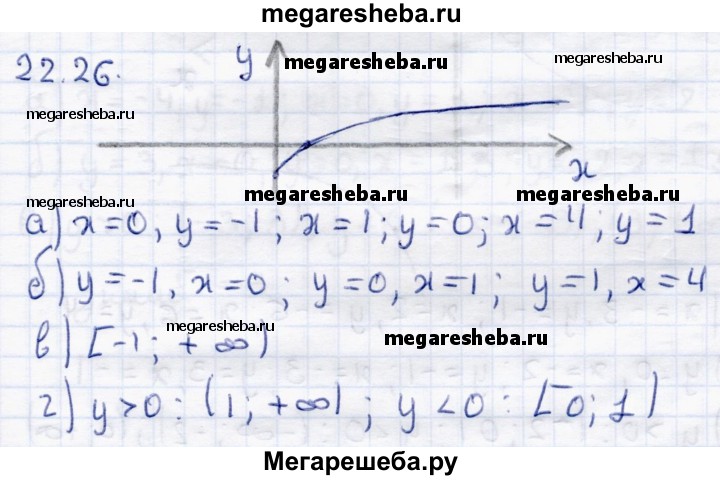 megaresheba.ru
22.26.
y
megaresheba.ru
megaresheba.ru
megaresheba.ru
x
megaresheba.ru
megaresheba.ru
megaresheba.ru
а) x=0, y=-1; x=1; y=0; x=4; y=1
б) y=-1, x=0; y=0, x=1; y=1, x=4
megaresheba.ru
megaresheba.ru
в) [-1; +∞)
г) y>0: (1; +∞); y<0: [0; 1)
Мегарешеба.ру